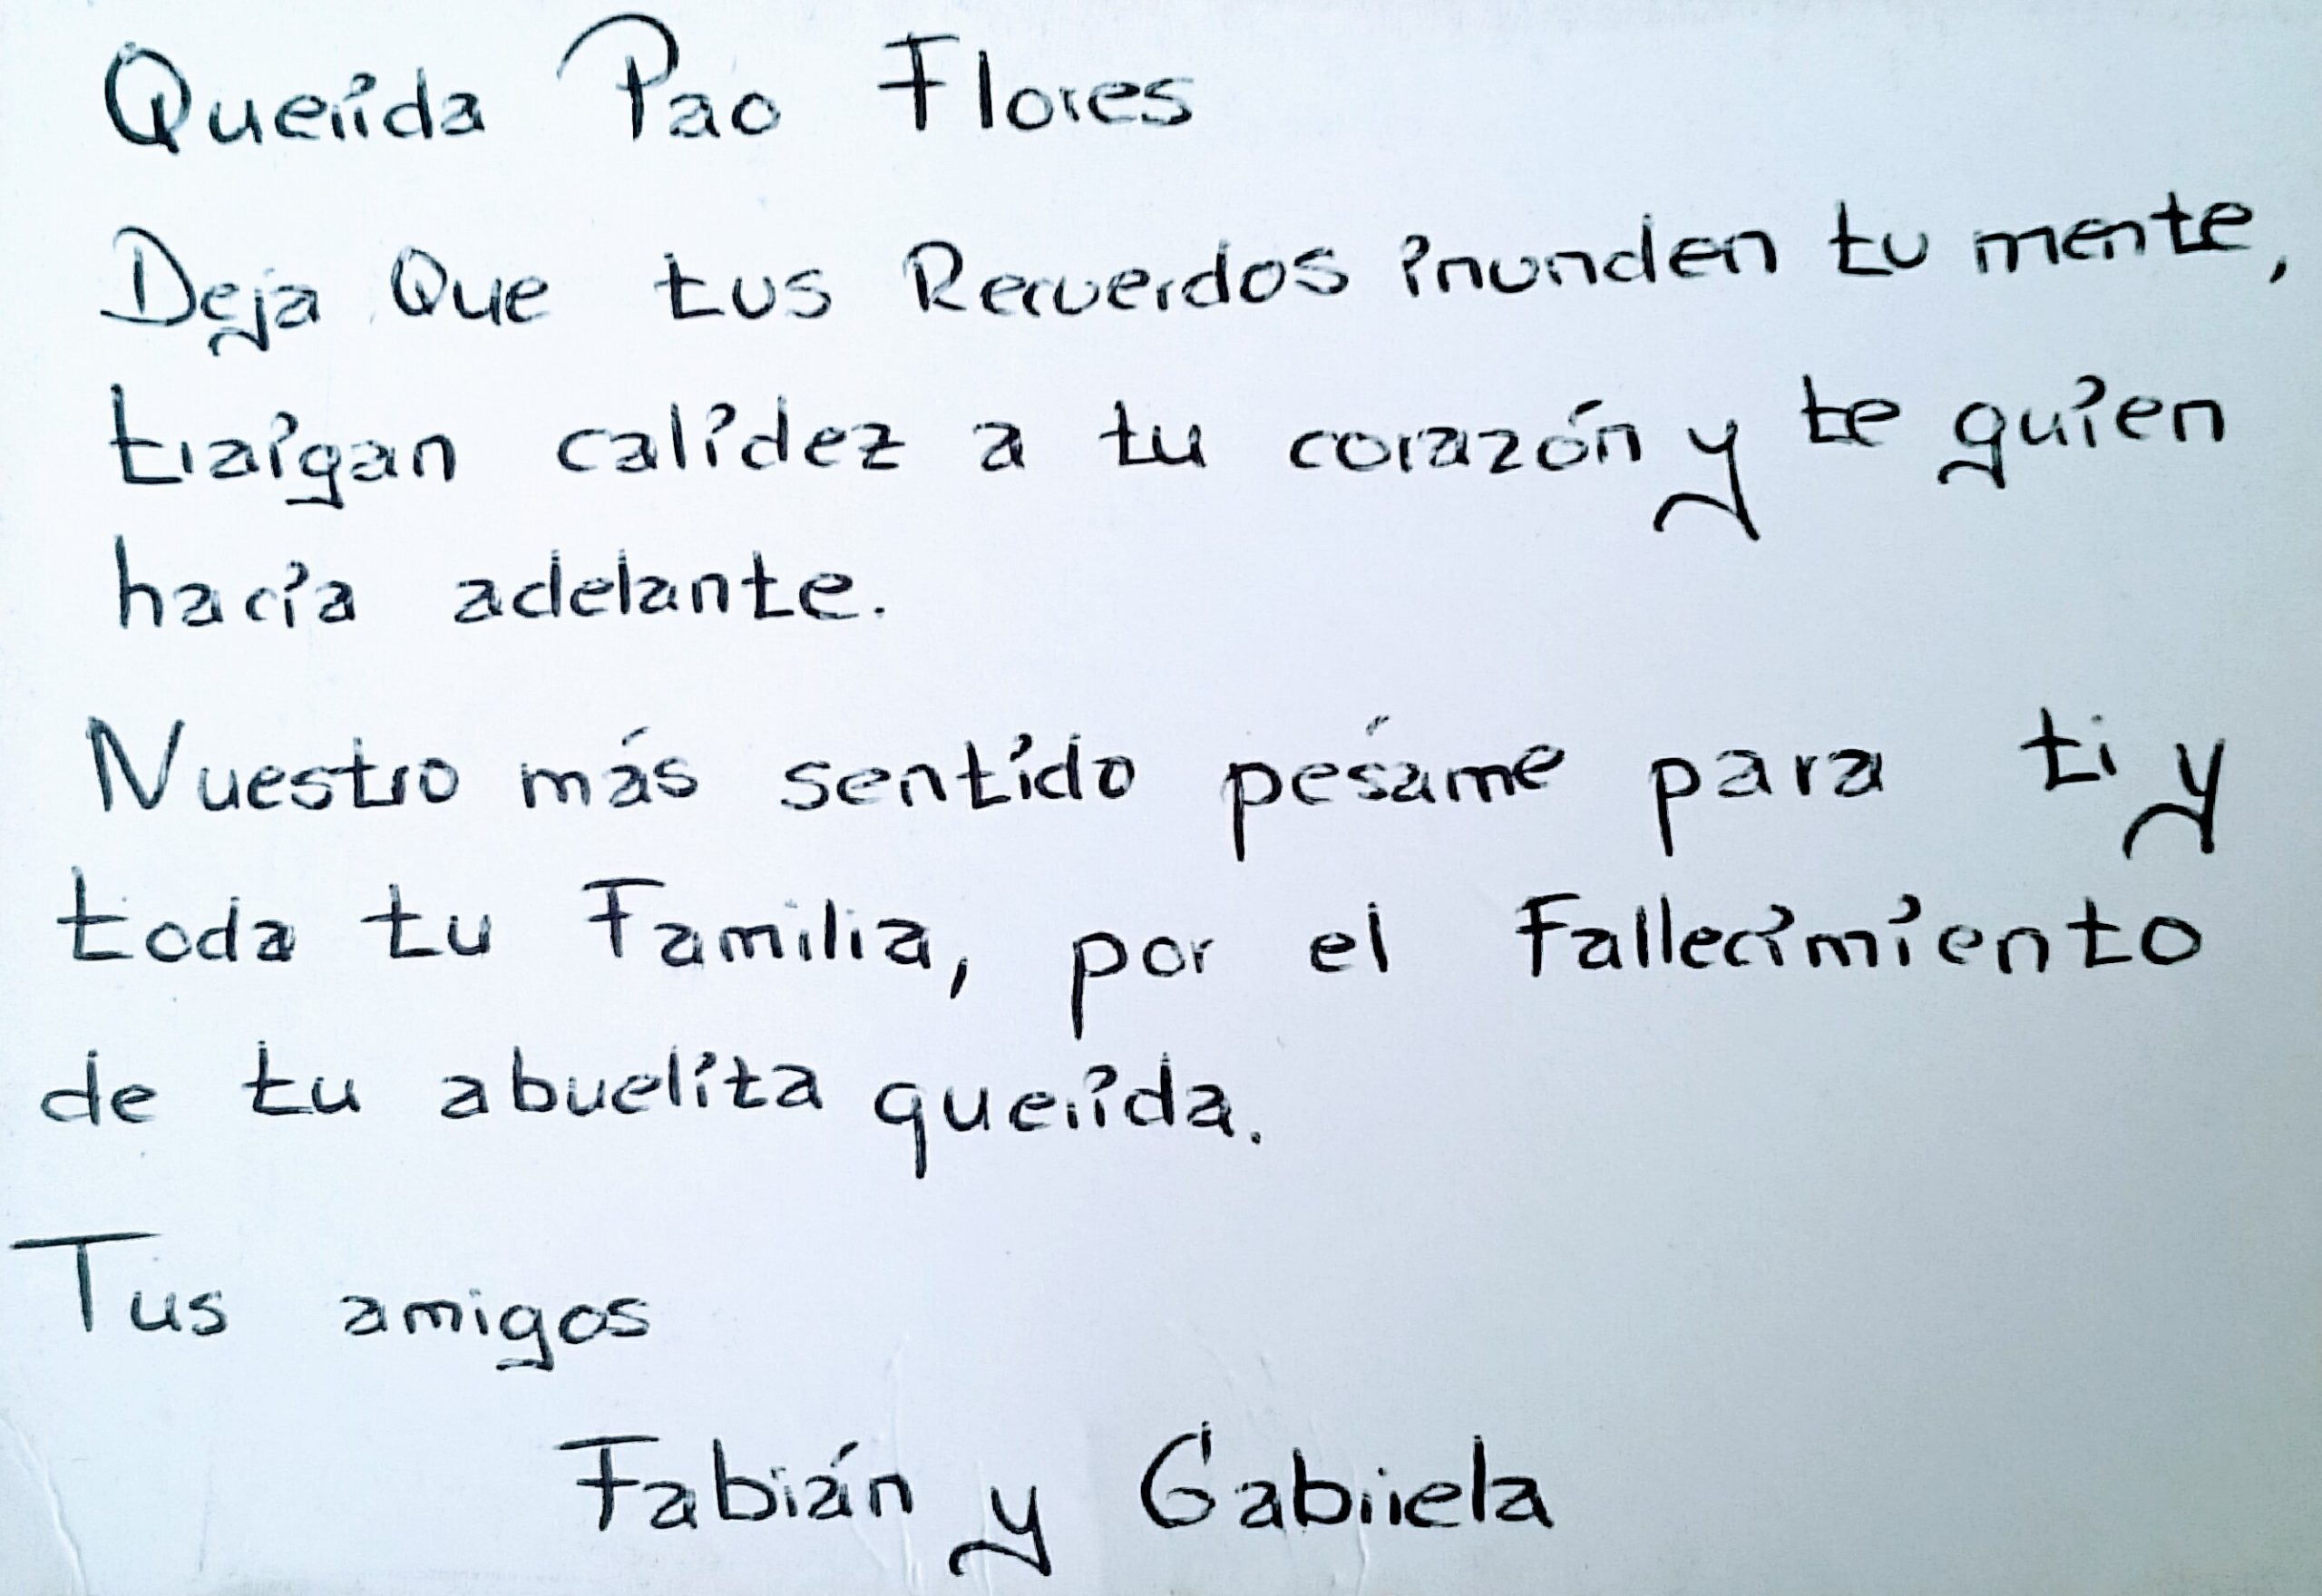 Querida Pao Flores
Deja Que tus Recuerdos inunden tu mente,
traigan calidez a tu corazón y te guien
hacia adelante.
Nuestro más sentido pésame para ti y
toda tu Familia, por el Fallecimiento
de tu abuelita querida.
Tus amigos
Fabián y Gabriela